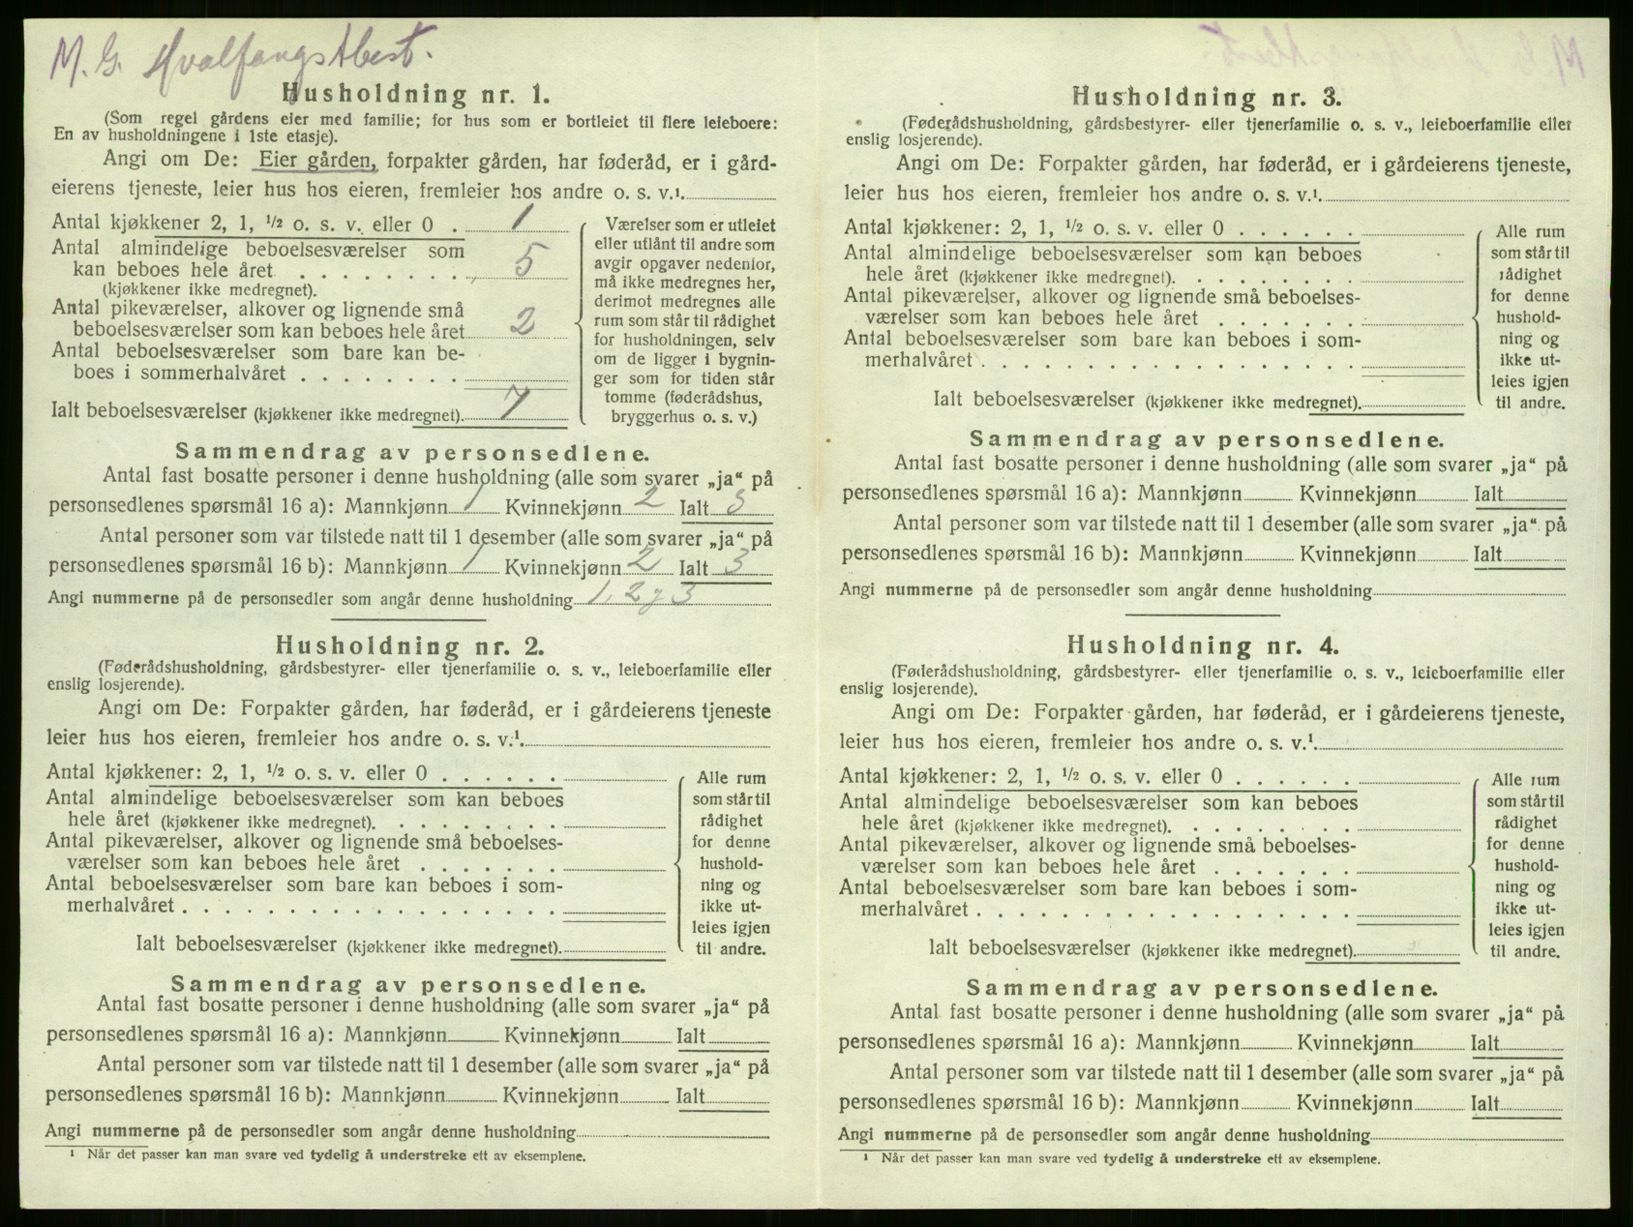 M. G. Hvalfangstbest.
Husholdning nr. 1.
(Som regel gårdens eier med familie; for hus som er bortleiet til flere leieboere:
En av husholdningene i 1ste etasje).
Angi om De: Eier gården, forpakter gården, har føderåd, er i gård-
eierens tjeneste, leier hus hos eieren, fremleier hos andre o. s. v.¹.
Antal kjøkkener 2, 1, ½ o. s. v. eller 0 . 1
Antal almindelige beboelsesværelser som
kan beboes hele året . . . . . . . . 5
(kjøkkener ikke medregnet).
Antal pikeværelser, alkover og lignende små
beboelsesværelser som kan beboes hele året 2
Antal beboelsesværelser som bare kan be-
boes i sommerhalvåret . . . . . . . .
Ialt beboelsesværelser (kjøkkener ikke medregnet). 7
Værelser som er utleiet
eller utlånt til andre som
avgir opgaver nedenfor,
må ikke medregnes her,
derimot medregnes alle
rum som står til rådighet
for husholdningen, selv
om de ligger i bygnin-
ger som for tiden står
tomme (føderådshus,
bryggerhus o. s. v.)
Sammendrag av personsedlene.
Antal fast bosatte personer i denne husholdning (alle som svarer „ja“ på
personsedlenes spørsmål 16 a): Mannkjønn 1 Kvinnekjønn 2 Ialt 3
Antal personer som var tilstede natt til 1 desember (alle som svarer „ja“ på
personsedlenes spørsmål 16 b): Mannkjønn 1 Kvinnekjønn 2 Ialt 3
Angi nummerne på de personsedler som angår denne husholdning 1, 2 g 3
Husholdning nr. 2.
(Føderådshusholdning, gårdsbestyrer- eller tjenerfamilie o. s. v., leieboerfamilie eller
enslig losjerende).
Angi om De: Forpakter gården, har føderåd, er i gårdeierens tjeneste
leier hus hos eieren, fremleier hos andre o. s. v.¹.
Antal kjøkkener: 2, 1, ½ o. s. v. eller 0 . . . . . .
Antal almindelige beboelsesværelser som kan beboes
hele året (kjøkkener ikke medregnet). . . . . . . . .
Antal pikeværelser, alkover og lignende små beboelses-
værelser som kan beboes hele året . . . . . . .
Antal beboelsesværelser som bare kan beboes i som-
merhalvåret . . . . . . . . . . . . . . . . . .
Ialt beboelsesværelser (kjøkkener ikke medregnet).
Alle rum
som står til
rådighet
for denne
hushold-
ning og
ikke ut-
leies igjen
til andre.
Sammendrag av personsedlene.
Antal fast bosatte personer i denne husholdning (alle som svarer „ja“ på
personsedlenes spørsmål 16 a): Mannkjønn Kvinnekjønn Ialt
Antal personer som var tilstede natt til 1 desember (alle som svarer „ja“ på
personsedlenes spørsmål 16 b): Mannkjønn Kvinnekjønn Ialt
Angi nummerne på de personsedler som angår denne husholdning
¹ Når det passer kan man svare ved tydelig å understreke ett av eksemplene.
Husholdning nr. 3.
(Føderådshusholdning, gårdsbestyrer- eller tjenerfamilie o. s. v., leieboerfamilie eller
enslig losjerende).
Angi om De: Forpakter gården, har føderåd, er i gårdeierens tjeneste,
leier hus hos eieren, fremleier hos andre o. s. v.¹.
Antal kjøkkener: 2, 1, ½ o. s. v. eller 0 . . . . . .
Antal almindelige beboelsesværelser som kan beboes
hele året (kjøkkener ikke medregnet). . . . . . . . .
Antal pikeværelser, alkover og lignende små beboelses-
værelser som kan beboes hele året . . . . . . .
Antal beboelsesværelser som bare kan beboes i som-
merhalvåret . . . . . . . . . . . . . . . . . .
Ialt beboelsesværelser (kjøkkener ikke medregnet).
Alle rum
som står til
rådighet
for denne
hushold-
ning og
ikke ut-
leies igjen
til andre.
Sammendrag av personsedlene.
Antal fast bosatte personer i denne husholdning (alle som svarer „ja“ på
personsedlenes spørsmål 16 a): Mannkjønn Kvinnekjønn Ialt
Antal personer som var tilstede natt til 1 desember (alle som svarer „ja“ på
personsedlenes spørsmål 16 b): Mannkjønn Kvinnekjønn Ialt
Angi nummerne på de personsedler som angår denne husholdning
Husholdning nr. 4.
(Føderådshusholdning, gårdsbestyrer- eller tjenerfamilie o. s. v., leieboerfamilie eller
enslig losjerende).
Angi om De: Forpakter gården, har føderåd, er i gårdeierens tjeneste,
leier hus hos eieren, fremleier hos andre o. s. v.¹.
Antal kjøkkener: 2, 1, ½ o. s. v. eller 0 . . . . . .
Antal almindelige beboelsesværelser som kan beboes
hele året (kjøkkener ikke medregnet). . . . . . . . .
Antal pikeværelser, alkover og lignende små beboelses-
værelser som kan beboes hele året . . . . . . .
Antal beboelsesværelser som bare kan beboes i som-
merhalvåret . . . . . . . . . . . . . . . . . .
Ialt beboelsesværelser (kjøkkener ikke medregnet).
Alle rum
som står til
rådighet
for denne
hushold-
ning og
ikke ut-
leies igjen
til andre.
Sammendrag av personsedlene.
Antal fast bosatte personer i denne husholdning (alle som svarer „ja“ på
personsedlenes spørsmål 16 a): Mannkjønn Kvinnekjønn Ialt
Antal personer som var tilstede natt til 1 desember (alle som svarer „ja“ på
personsedlenes spørsmål 16 b): Mannkjønn Kvinnekjønn Ialt
Angi nummerne på de personsedler som angår denne husholdning
¹ Når det passer kan man svare ved tydelig å understreke ett av eksemplene.